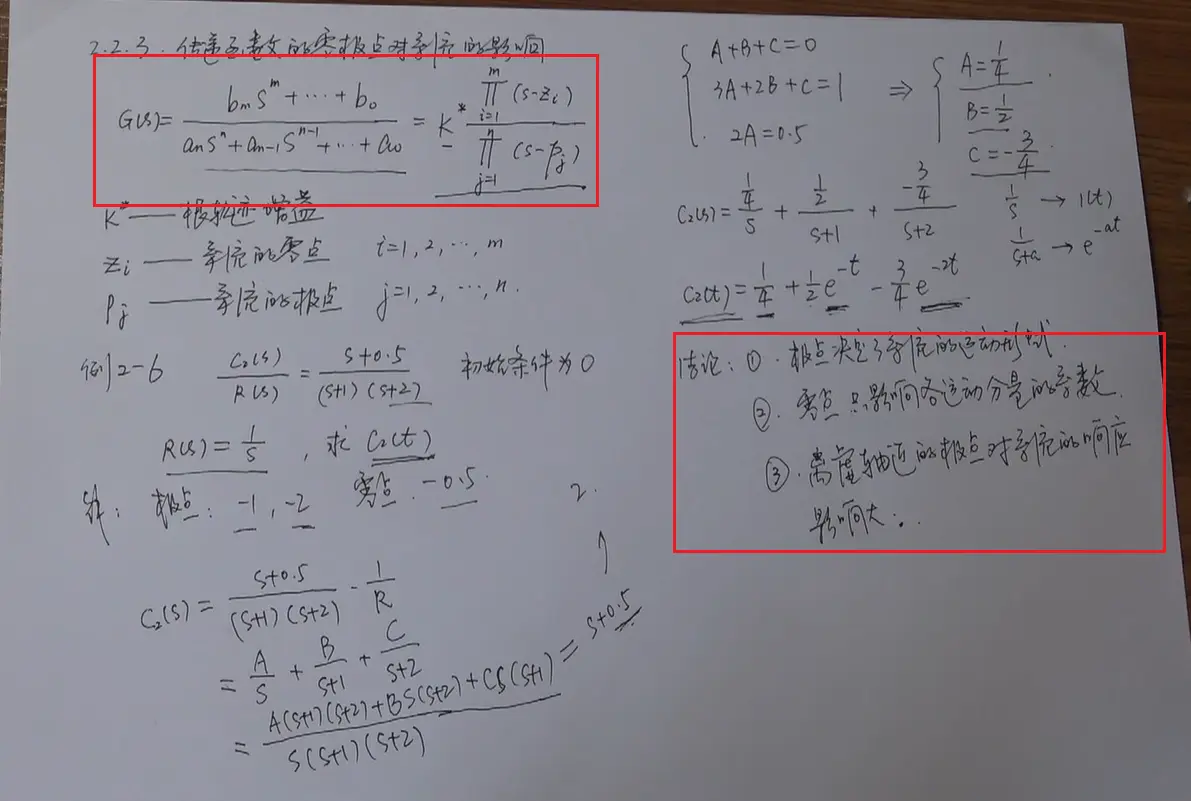 2.2.3. 传递函数的零极点对系统的影响
G(s)= (bₘsᵐ+⋯+b₀)/(aₙsⁿ+aₙ₋₁sⁿ⁻¹+⋯+a₀) = K* ∏ᵢ₌₁ᵐ(s-zᵢ)/∏ⱼ₌₁ⁿ(s-pⱼ)
K* —— 根轨迹增益
zᵢ —— 系统的零点 i=1,2,⋯,m
pⱼ —— 系统的极点 j=1,2,⋯,n.
例2-6 C₂(s)/R(s) = (s+0.5)/((s+1)(s+2)) 初始条件为0
R(s)=1/s , 求C₂(t)
解: 极点: -1, -2 零点: -0.5.
C₂(s)= (s+0.5)/((s+1)(s+2)) · 1/R
= A/s + B/(s+1) + C/(s+2)
= (A(s+1)(s+2)+BS(s+2)+CS(s+1))/(s(s+1)(s+2)) = s+0.5
2.
{ A+B+C=0
3A+2B+C=1
2A=0.5
⇒ { A=1/4
B=1/2
C=-3/4
C₂(s)= (1/4)/s + (1/2)/(s+1) + (-3/4)/(s+2)
1/s → 1(t)
1/(s+a) → e^(-at)
C₂(t)= 1/4 + 1/2 e^(-t) - 3/4 e^(-2t)
结论: ①. 极点决定了系统的运动形式.
②. 零点只影响各运动分量的系数.
③. 离虚轴近的极点对系统的响应
影响大.